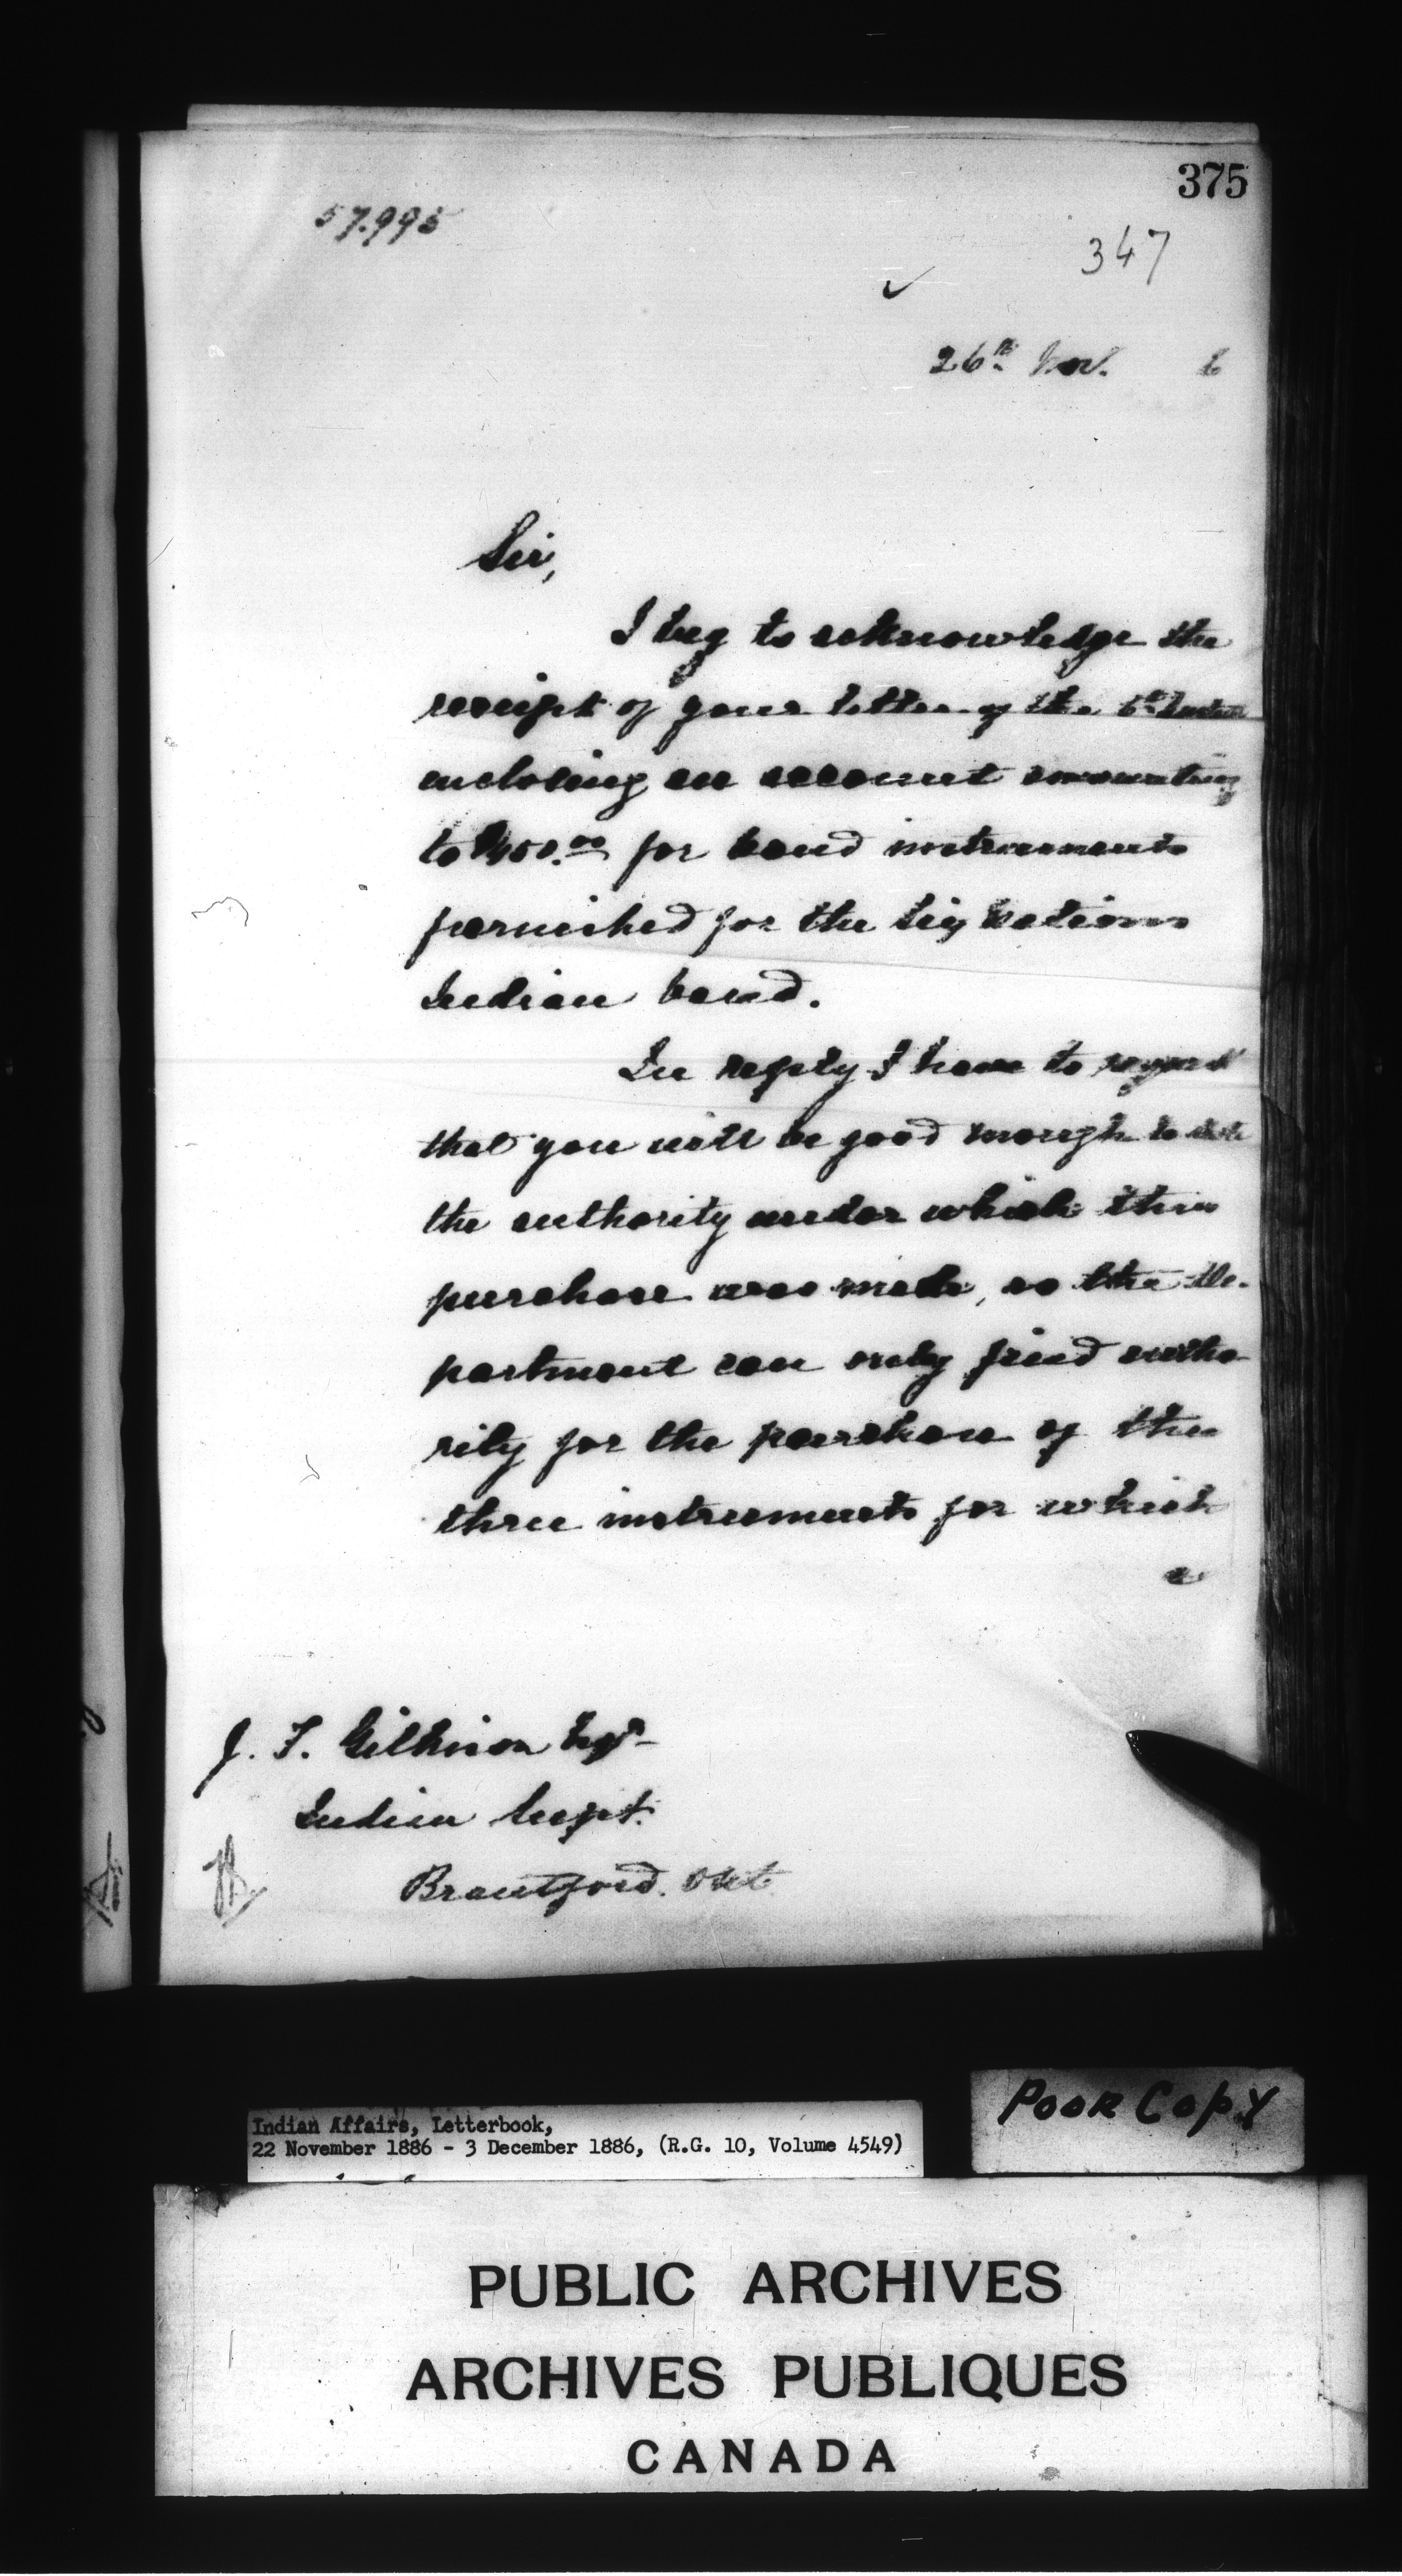 375
57.995
347
26th Nov. 6
Sir,
I beg to acknowledge the
receipt of your letter of the 6th Instant
enclosing an account amounting
to $400.00 for band instruments
furnished for the Six Nations
Indian band.
In reply I have to request
that you will be good enough to state
the authority under which this
purchase was made, as the De-
partment can only find autho-
rity for the purchase of the
three instruments for which
a
J. T. Gilkison Esqr
Indian Supt.
Brantford. Ont.
Poor Copy
Indian Affairs, Letterbook,
22 November 1886 - 3 December 1886, (R.G. 10, Volume 4549)
PUBLIC ARCHIVES
ARCHIVES PUBLIQUES
CANADA